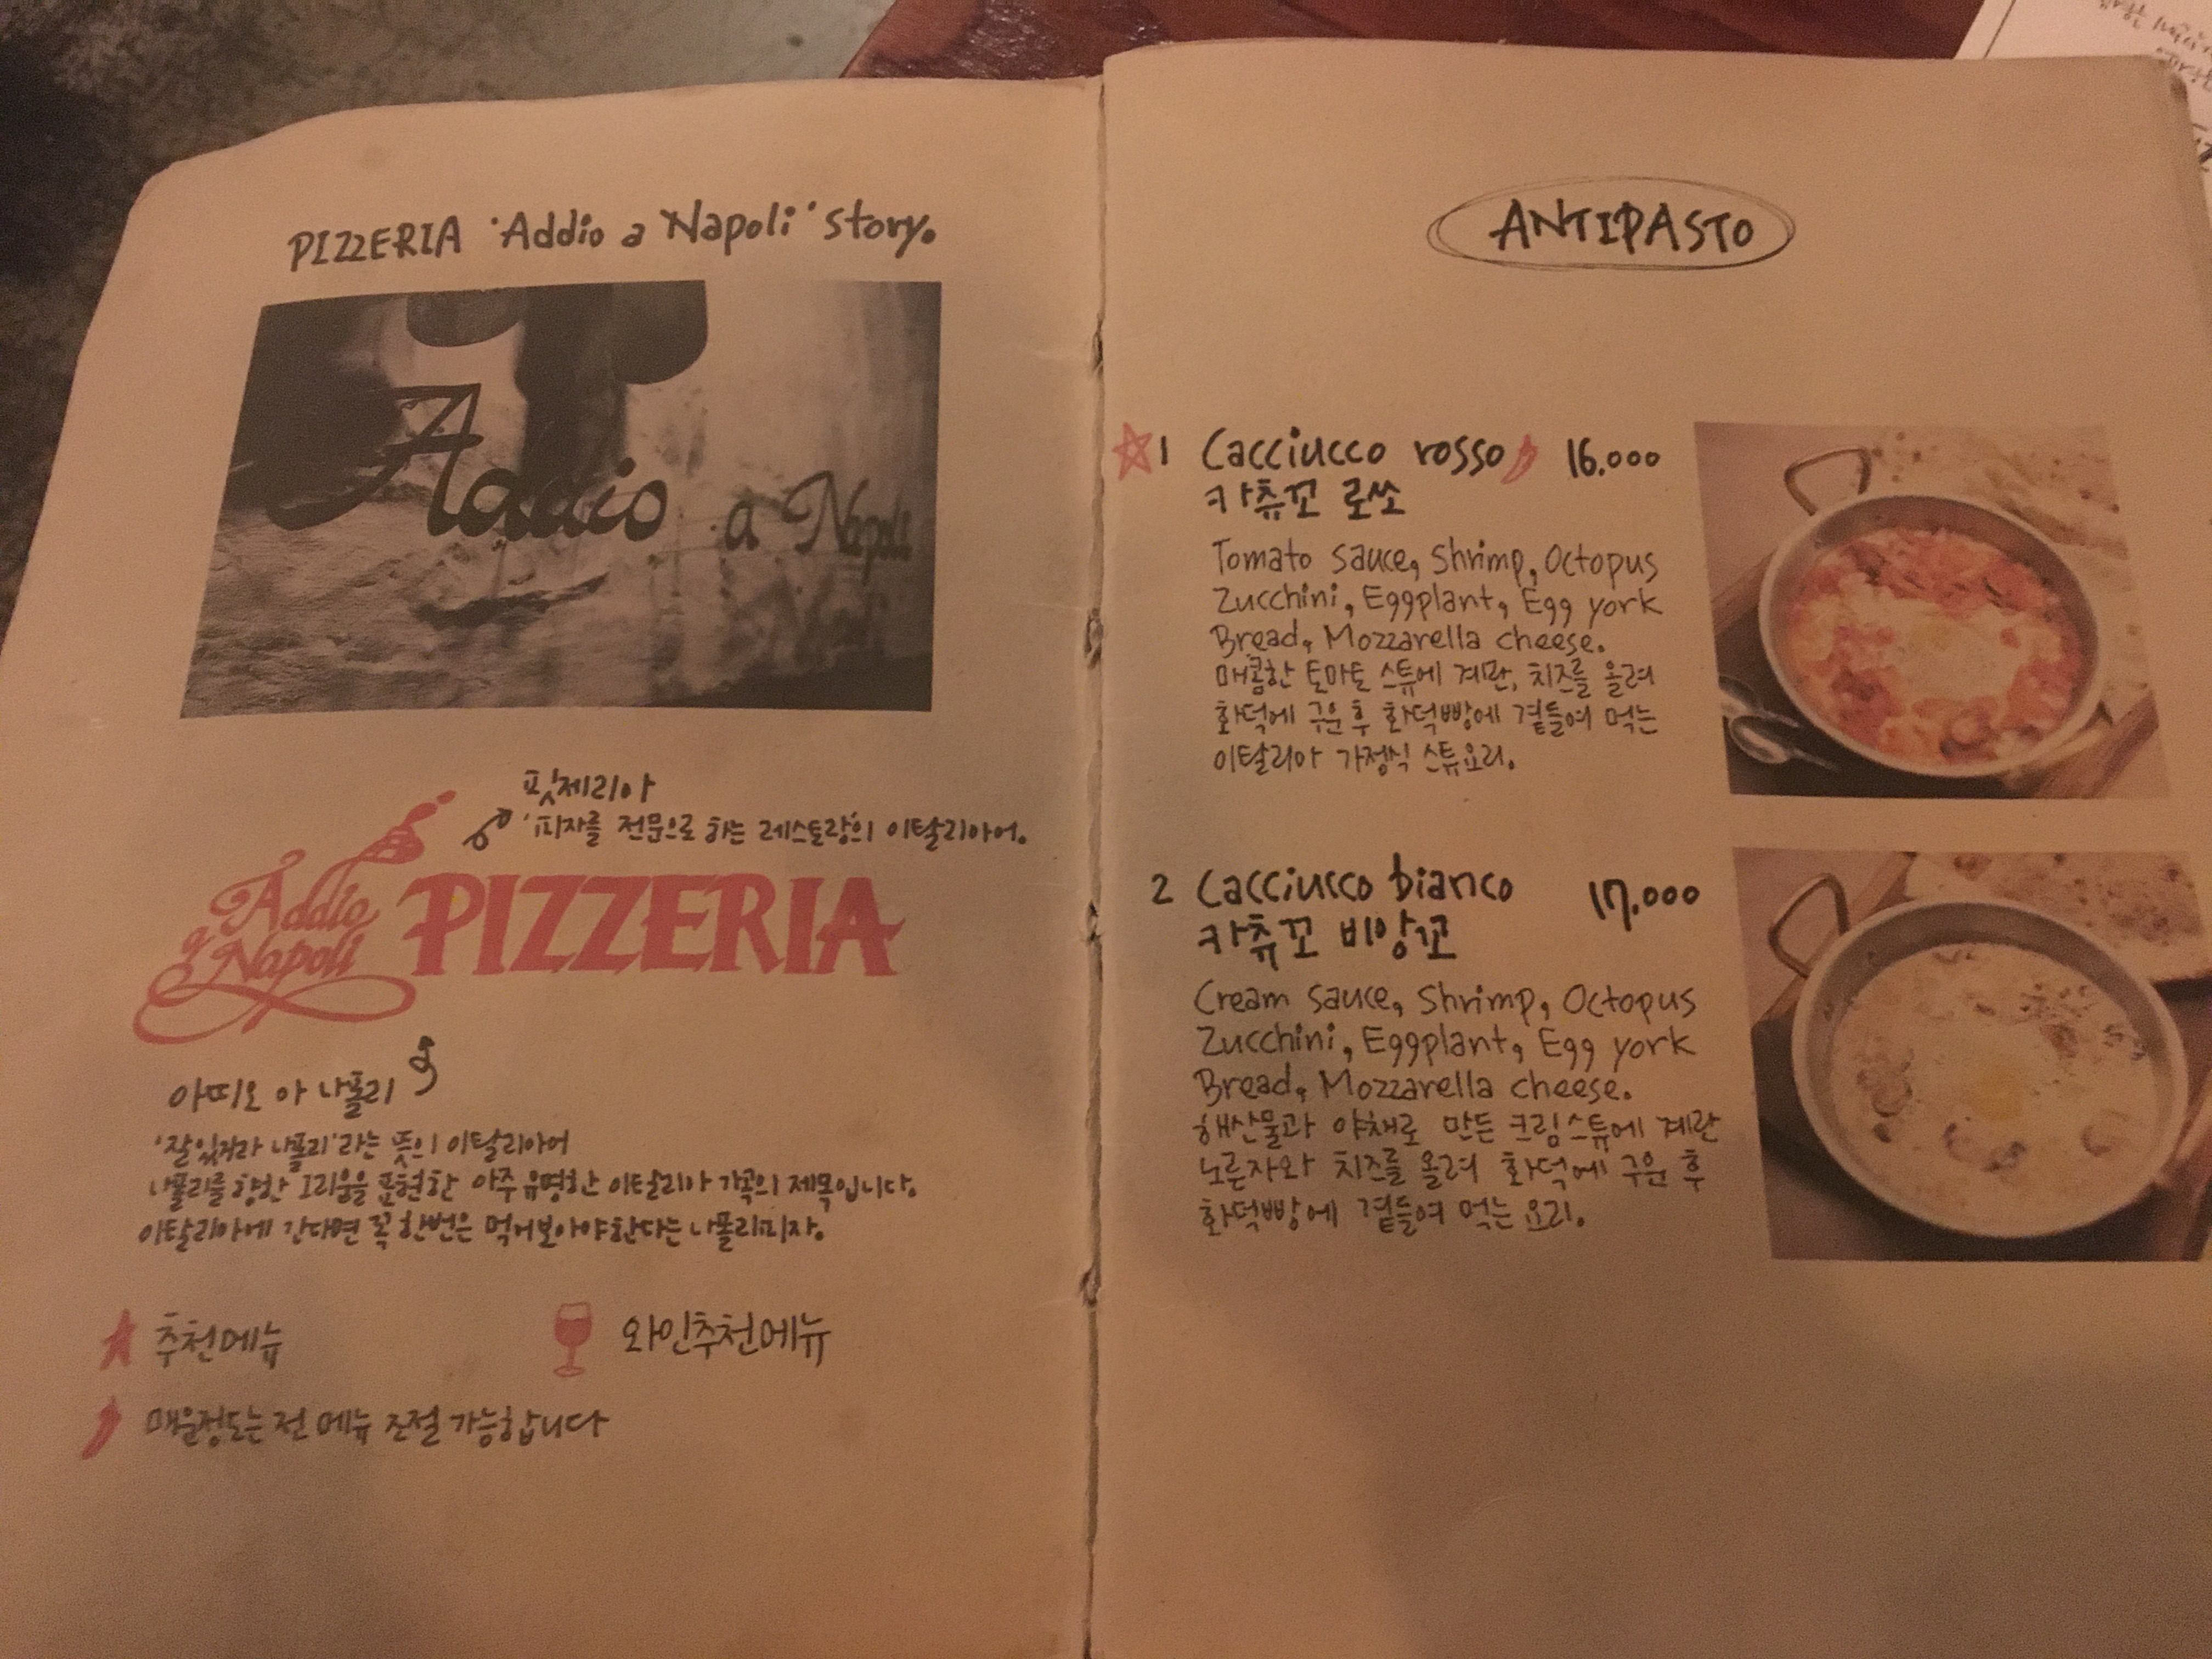 PIZZERIA 'Addio a Napoli' story.
Addio a Napoli
핏제리아
'피자를 전문으로 하는 레스토랑'의 이탈리아어.
Addio
a Napoli
PIZZERIA
아띠오 아 나폴리
'잘있거라 나폴리'라는 뜻의 이탈리아어
나폴리를 향한 그리움을 표현한 아주 유명한 이탈리아 가곡의 제목입니다.
이탈리아에 간다면 꼭 한번은 먹어보아야한다는 나폴리피자.
추천메뉴
와인추천메뉴
매운정도는 전 메뉴 조절 가능합니다
ANTIPASTO
1 Cacciucco rosso 16.000
카츄꼬 로쏘
Tomato sauce, Shrimp, Octopus
Zucchini, Eggplant, Egg york
Bread, Mozzarella cheese.
매콤한 토마토 스튜에 계란, 치즈를 올려
화덕에 구운 후 화덕빵에 곁들여 먹는
이탈리아 가정식 스튜요리.
2 Cacciucco bianco 17.000
카츄꼬 비앙꼬
Cream sauce, Shrimp, Octopus
Zucchini, Eggplant, Egg york
Bread, Mozzarella cheese.
해산물과 야채로 만든 크림스튜에 계란
노른자와 치즈를 올려 화덕에 구운 후
화덕빵에 곁들여 먹는 요리.